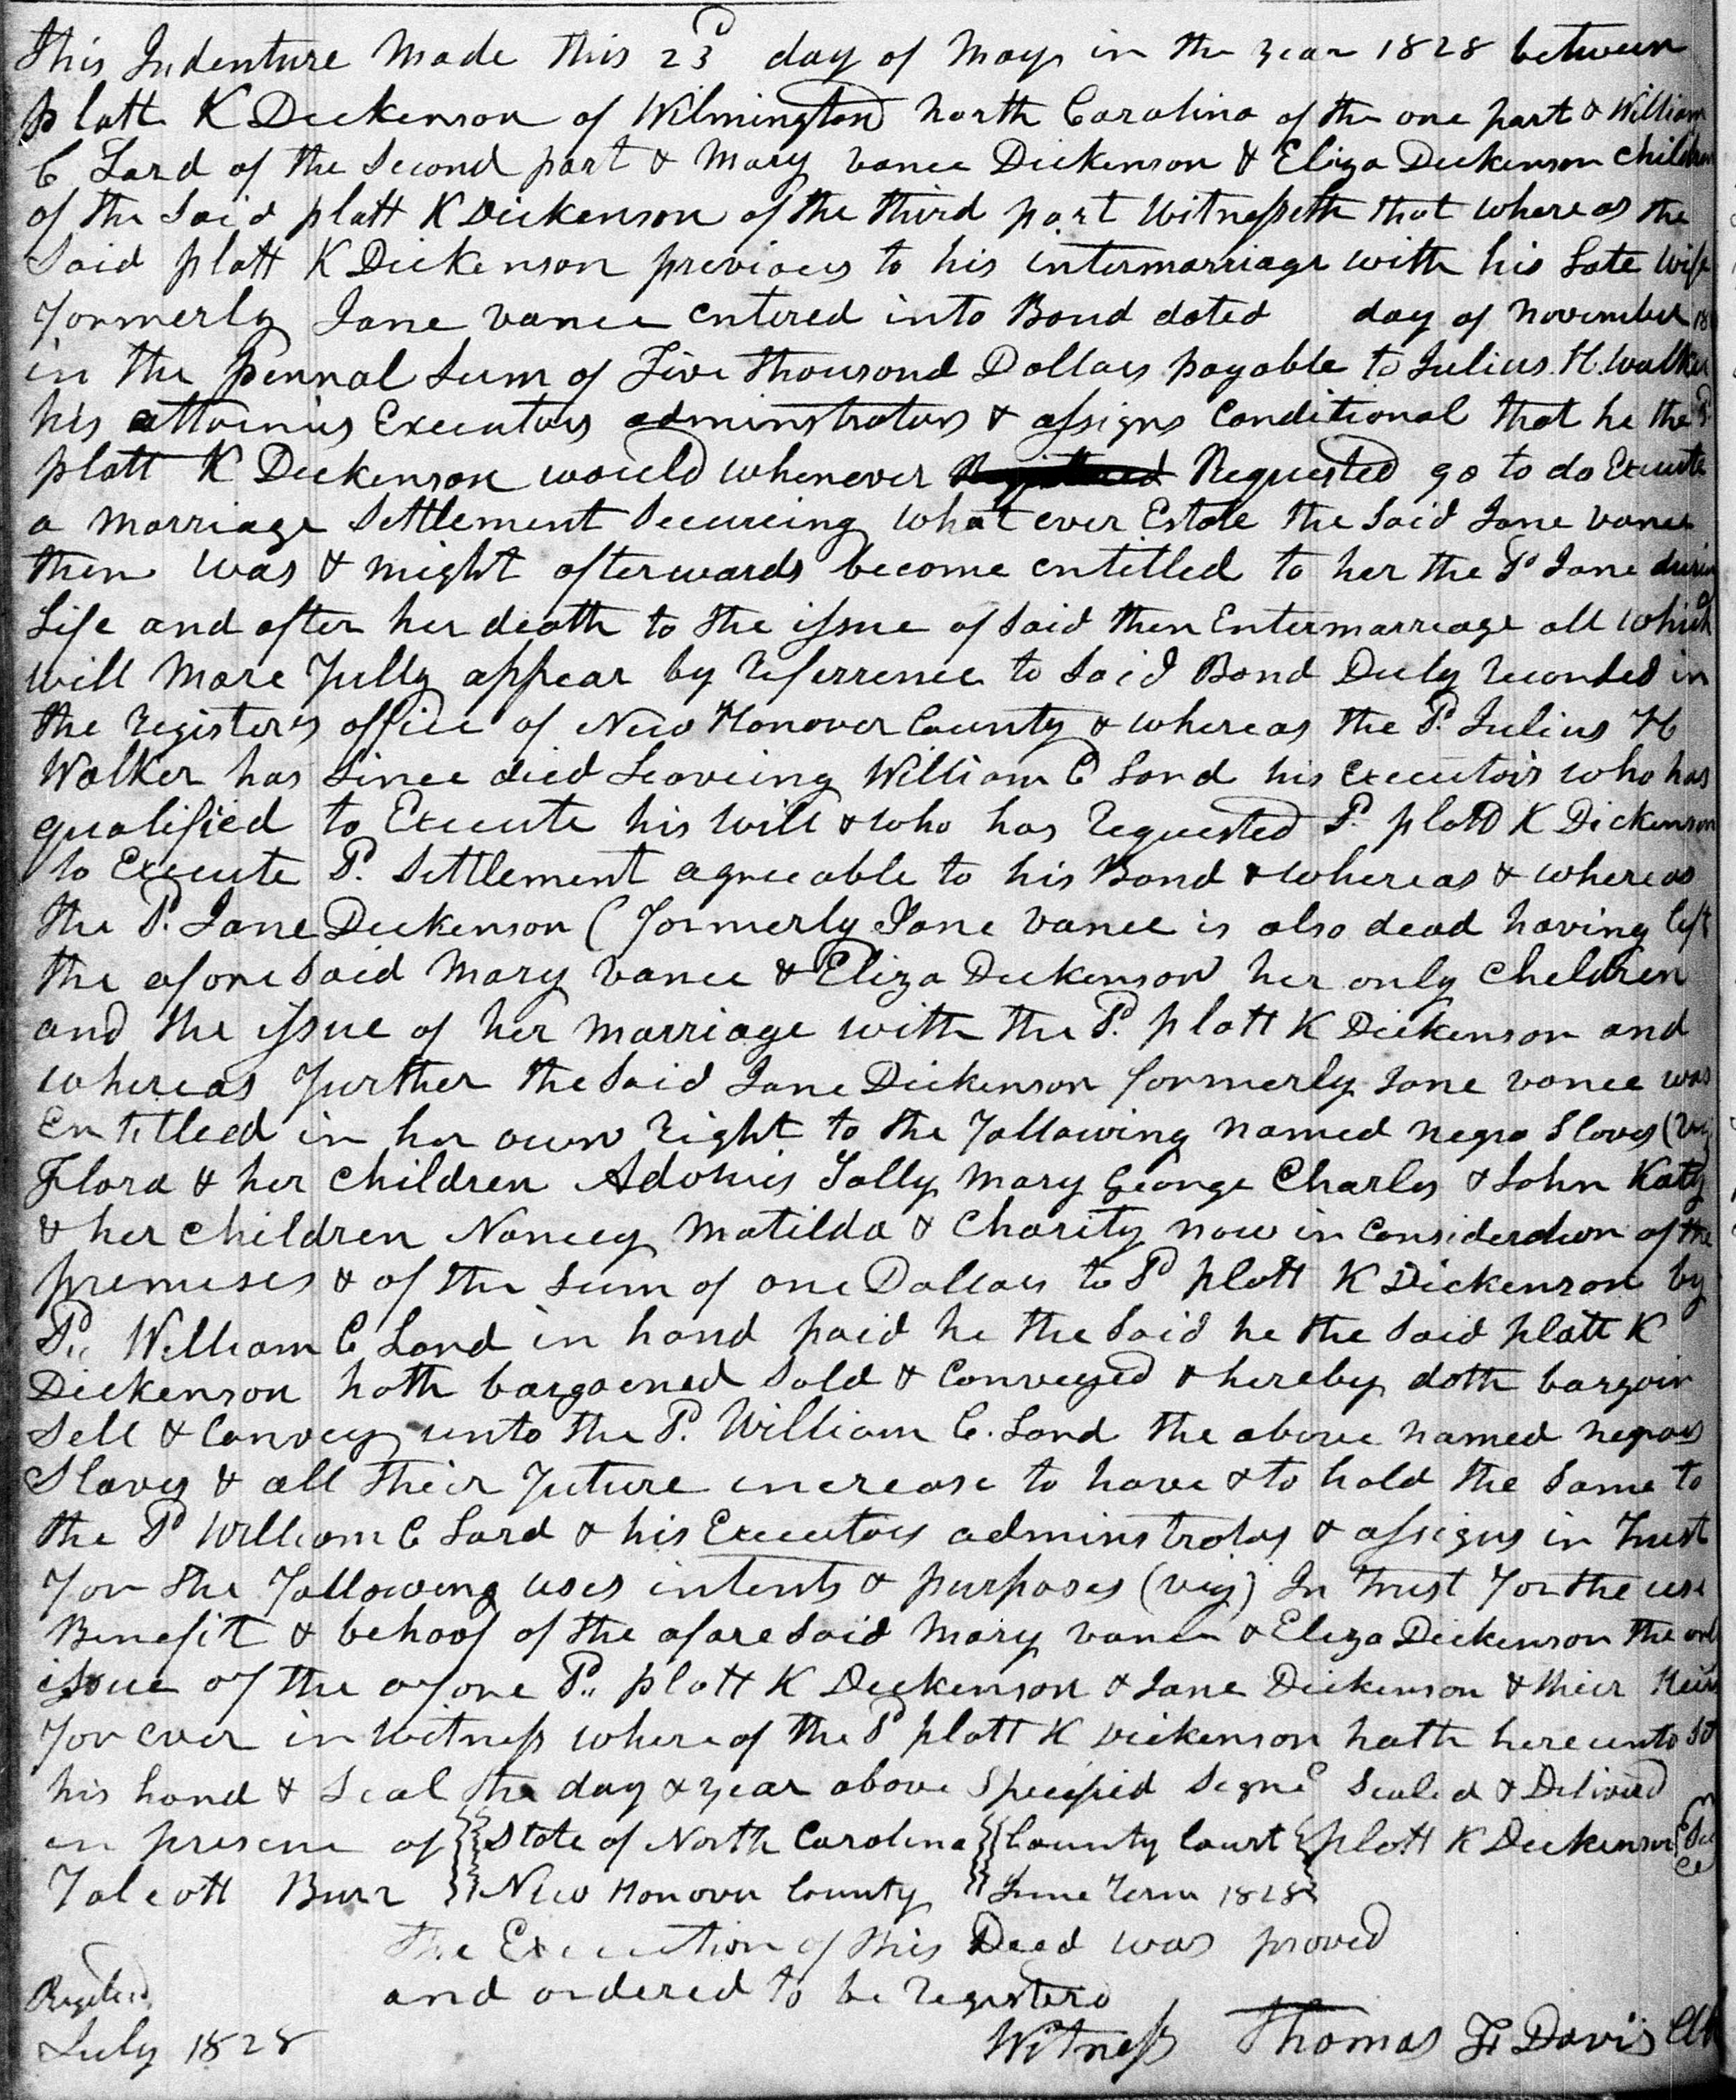 This Indenture Made this 23d day of May in the year 1828 between
Platt K Dickenson of Wilmington North Carolina of the one part & William
C Lord of the Second part & Mary Vance Dickenson & Eliza Dickenson children
of the Said Platt K Dickenson of the third part Witnesseth that where as the
Said Platt K Dickenson previous to his intermarriage with his Late wife
formerly Jane Vance entered into Bond dated day of November 18
in the pennal Sum of Five thousand Dollars payable to Julius H. Walker
his attornies Executors adminstrators & assigns Conditional that he the Sd
Platt K Dickenson would whenever Requested go to do Execute
a Marriage Settlement Secureing what ever Estate the Said Jane Vance
then was & might afterwards become entitled to her the Sd Jane during
Life and after her death to the issue of Said then Entermarreage all which
will More fully appear by referrence to Said Bond Duly recorded in
the registers office of New Hanover County & whereas the Sd. Julius H
Walker has Since died Leaveing William C Lord his executors who has
qualified to Execute his will & who has requested Sd. Platt K Dickenson
to Execute Sd. Settlement agreeable to his Bond & whereas & whereas
the Sd. Jane Dickenson (formerly Jane Vance is also dead having left
the afore Said Mary Vance & Eliza Dickenson her only Cheldren
and the issue of her Marriage with the Sd. Platt K Dickenson and
whereas further the Said Jane Dickenson formerly Jane Vance was
Entitleed in her own right to the following named negro Slaves (viz
Flora & her Children Adonis Sally Mary George Charles & John Katy
& her Children Nancey Matilda & Charity now in Consideration of the
premeses & of the Sum of one Dollar to Sd Platt K Dickenson by
Sd,, William C Lord in hand paid he the Said he the Said Platt K
Dickenson hath bargained Sold & Conveyed & hereby doth bargain
Sell & Convey unto the Sd. William C. Lord the above named negroes
Slaves & all their future increase to have & to hold the Same to
the Sd William C Lord & his Executors adminstrators & assigns in Trust
for the following uses intents & purposes (viz) In Trust for the use
Benefit & behoof of the afore Said Mary Vance & Eliza Dickenson the only
issue of the afore Sd,, Platt K Dickenson & Jane Dickenson & their Heirs
for ever in witness where of the Sd Platt K Dickenson hath hereunto Set
his hand & Seal the day & year above Specified Signed Sealed & Delivered
in presene of State of North Carolina County Court Platt K Dickenson Seal
Talcott Burr New Hanover County June Term 1828
The Execution of this Deed was proved
and ordered to be registerd
Registered
July 1828
Witness Thomas F Davis Clk